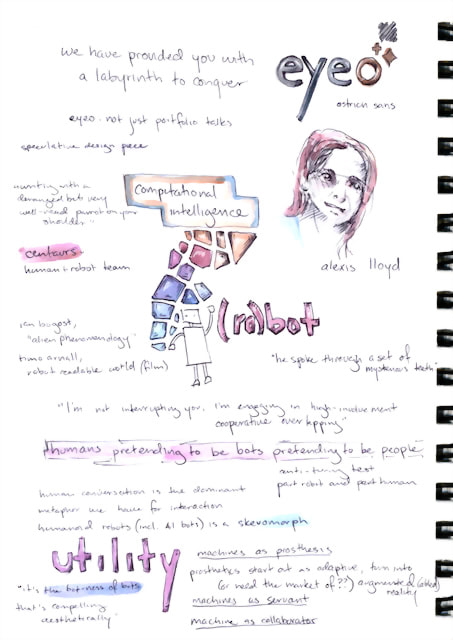 we have provided you with
a labyrinth to conquer
eyeo
ostrich sans
eyeo - not just portfolio talks
speculative design piece
"writing with a
deranged but very
well-read parrot on your
shoulder"
computational
intelligence
centaurs
human + robot team
alexis lloyd
(ro)bot
ian bogost,
"alien phenomenology"
timo arnall,
robot readable world (film)
"he spoke through a set of
mysterious teeth"
"I'm not interrupting you, I'm engaging in high-involvement
cooperative overlapping"
humans pretending to be bots pretending to be people
anti-turing test
part robot and part human
human conversation is the dominant
metaphor we have for interaction
humanoid robots (incl. AI bots) is a skeuomorph
utility
machines as prosthesis
prosthetics start at as adaptive, turn into
(or need the market of??) augmented
reality
machines as servant
machine as collaborator
"it's the bot-ness of bots
that's compelling
aesthetically"